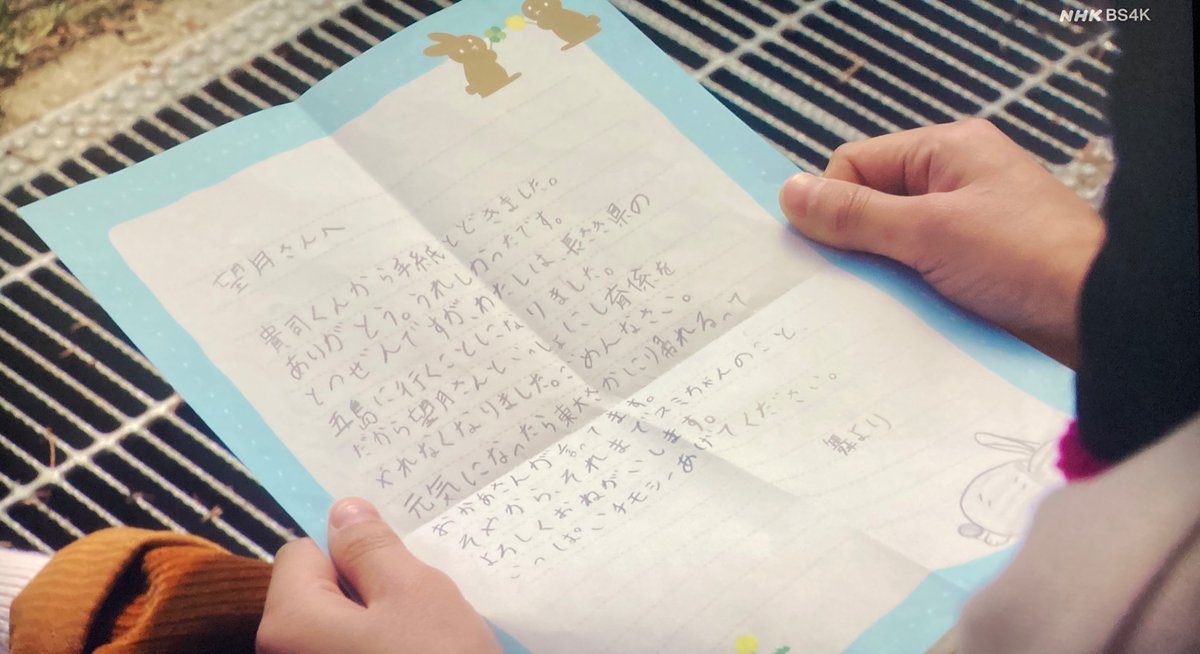 NHK BS4K
望月さんへ
貴司くんから手紙とどきました。
ありがとう。うれしかったです。
とつぜんですが、わたしは長さき県の
五島に行くことになりました。
だから望月さんといっしょにし育係を
やれなくなりました。ごめんなさい。
元気になったら東大さかに帰れるって
おかあさんが言ってます。
そやから、それまでスミちゃんのこと、
よろしくおねがいします。
いっぱいチモシーあげてください。
舞より